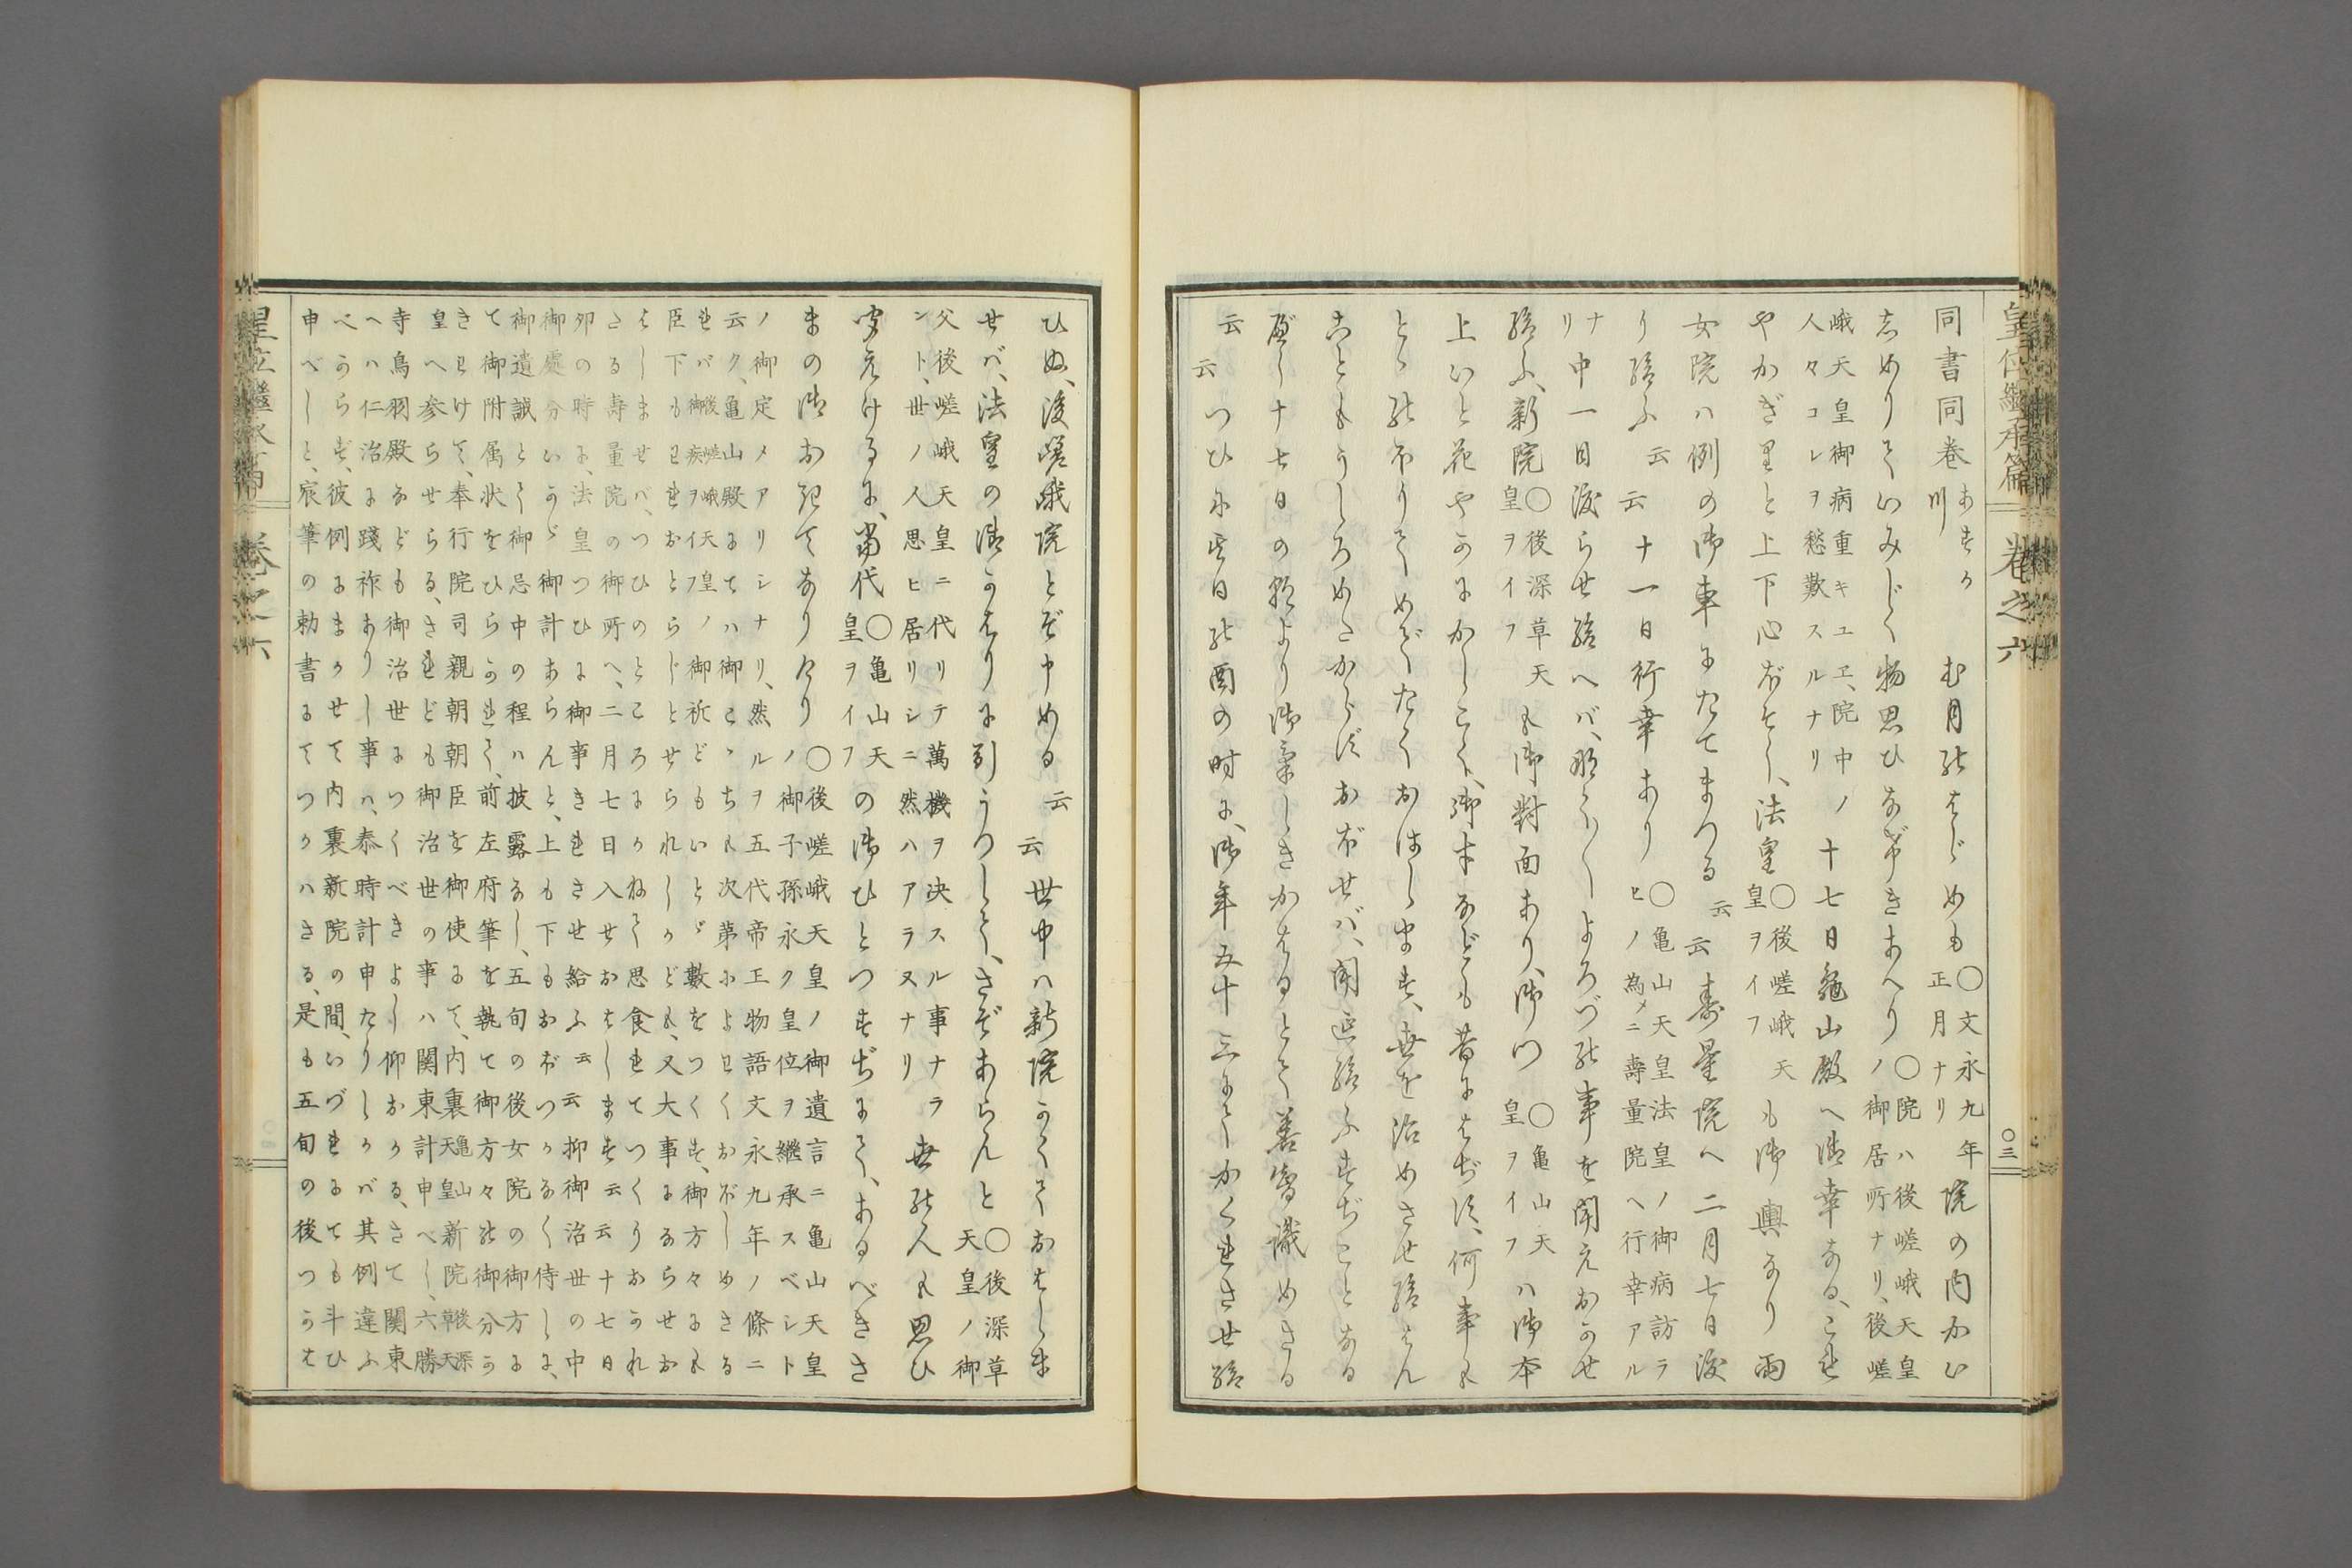 皇位繼承篇 巻之六 〇三
同書同巻 あすか川 む月のはじめも 〇文永九年正月ナリ 院の内かひ
しめりていみじく物思ひなげきあへり 〇院ハ後嵯峨天皇ノ御居所ナリ、後嵯
峨天皇御病重キユヱ、院中ノ人々コレヲ愁歎スルナリ 十七日亀山殿へ御幸なる、これ
やかぎりと上下心ぼそし、法皇 〇後嵯峨天皇ヲイフ も御輿なり両
女院ハ例の御車にたてまつる 云云 寿量院へ二月七日渡
り給ふ 云云 十一日行幸あり 〇亀山天皇法皇ノ御病訪ラヒノ為メニ壽量院ヘ行幸アル
ナリ 中一日渡らせ給へバ、よろづの事を聞えおかせ
給ふ、新院 〇後深草天皇ヲイフ も御對面あり、御門 〇亀山天皇ヲイフ ハ御本
上いと花やかにかしこく、御才なども昔にはぢず、何事も
とゝのほりてめでたくおはします、世を治めさせ給はん
こともうしろめたからずおぼせバ、聞エ給ふすぢことなる
べし十七日の朝より御氣しきかはるとて善智識めさる
云云 つひに其日の酉の時に、御年五十三にてかくれさせ給
ひぬ、後嵯峨院とぞ申める 云云 世中ハ新院かくておはしま
せバ、法皇の御かはりに引うつして、さぞあらんと 〇後深草天皇ノ御
父後嵯峨天皇ニ代リテ萬機ヲ決スル事ナラント、世ノ人思ヒ居リシニ然ハアラヌナリ 世の人も思ひ
聞えけるに、當代 〇亀山天皇ヲイフ の御ひとつすぢにて、あるべきさ
まの御おきてなりけり 〇後嵯峨天皇ノ御遺言ニ亀山天皇ノ御子孫永ク皇位ヲ繼承スベシト
ノ御定メアリシナリ、然ルヲ五代帝王物語文永九年ノ條ニ
云ク、亀山殿にてハ御こゝちも次第によわくおぼしめさる
れバ 後嵯峨天皇ノ御疾ヲイフ 御祈どもいとゞ數をつくす、御方々にも
臣下もわれおとらじとせられしかども、又大事にならせお
はしませバ、つひのところにかねて思食れてつくりおかれ
たる壽量院の御所へ、二月七日入せおはします 云云 十七日
卯の時に、法皇つひに御事きれさせ給ふ 云云 抑御治世の中
御處分いかゞ御計あらんと、上も下もおぼつかなく侍しに、
御遺誡とて御忌中の程ハ披露なし、五旬の後女院の御方に
て御附属状をひらかれて、前左府筆を執て御方々の御分か
きわけて、奉行院司親朝朝臣を御使にて、内裏 亀山天皇 新院 後深草天
皇 へ参らせらる、されども御治世の事ハ関東計申べし、六勝
寺鳥羽殿なども御治世につくべきよし仰おかる、さて関東
へハ仁治に踐祚ありし事ハ、泰時計申たりしかバ其例違ふ
べからず、彼例にまかせて内裏新院の間、いづれにても斗ひ
申べしと、宸筆の勅書にてつかハさる、是も五旬の後つかは
皇位繼承篇 巻之六